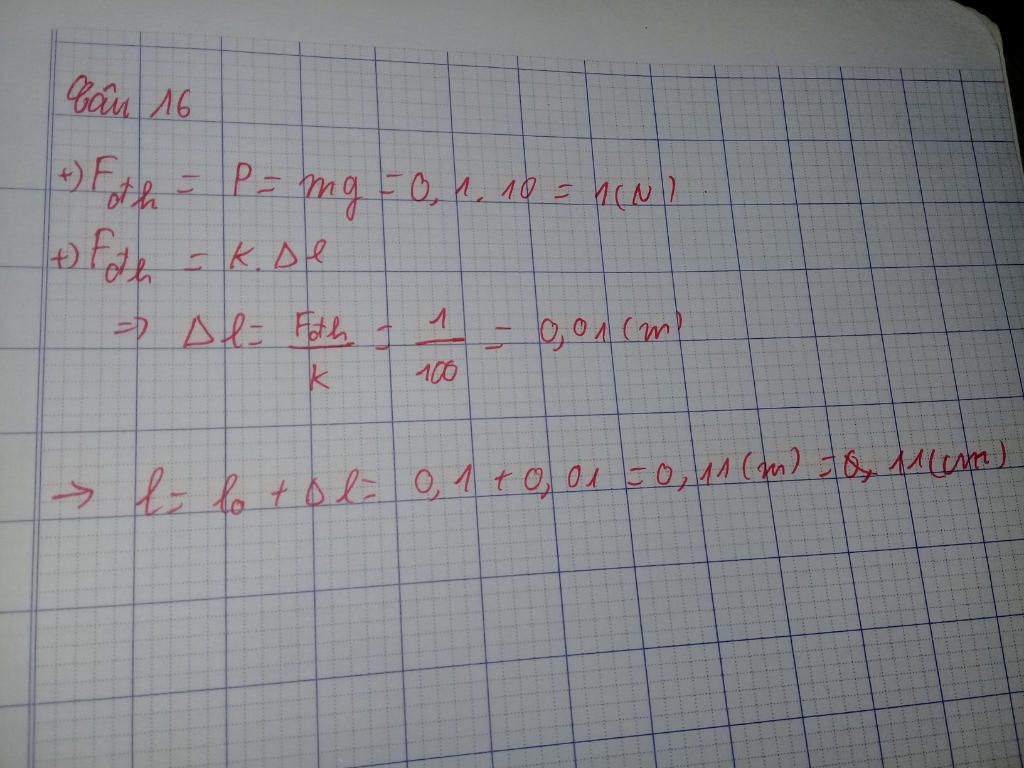 Câu 16
+) Fđh = P = mg = 0,1.10 = 1(N)
+) Fđh = K.Δl
=> Δl = Fđh/K = 1/100 = 0,01(m)
→ l = l₀ + Δl = 0,1 + 0,01 = 0,11(m) = 0,11(cm)